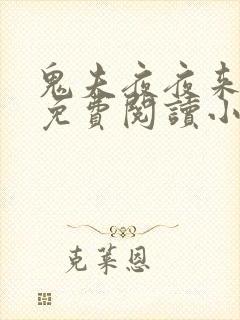 鬼夫夜夜来
免費閱讀小
克萊恩